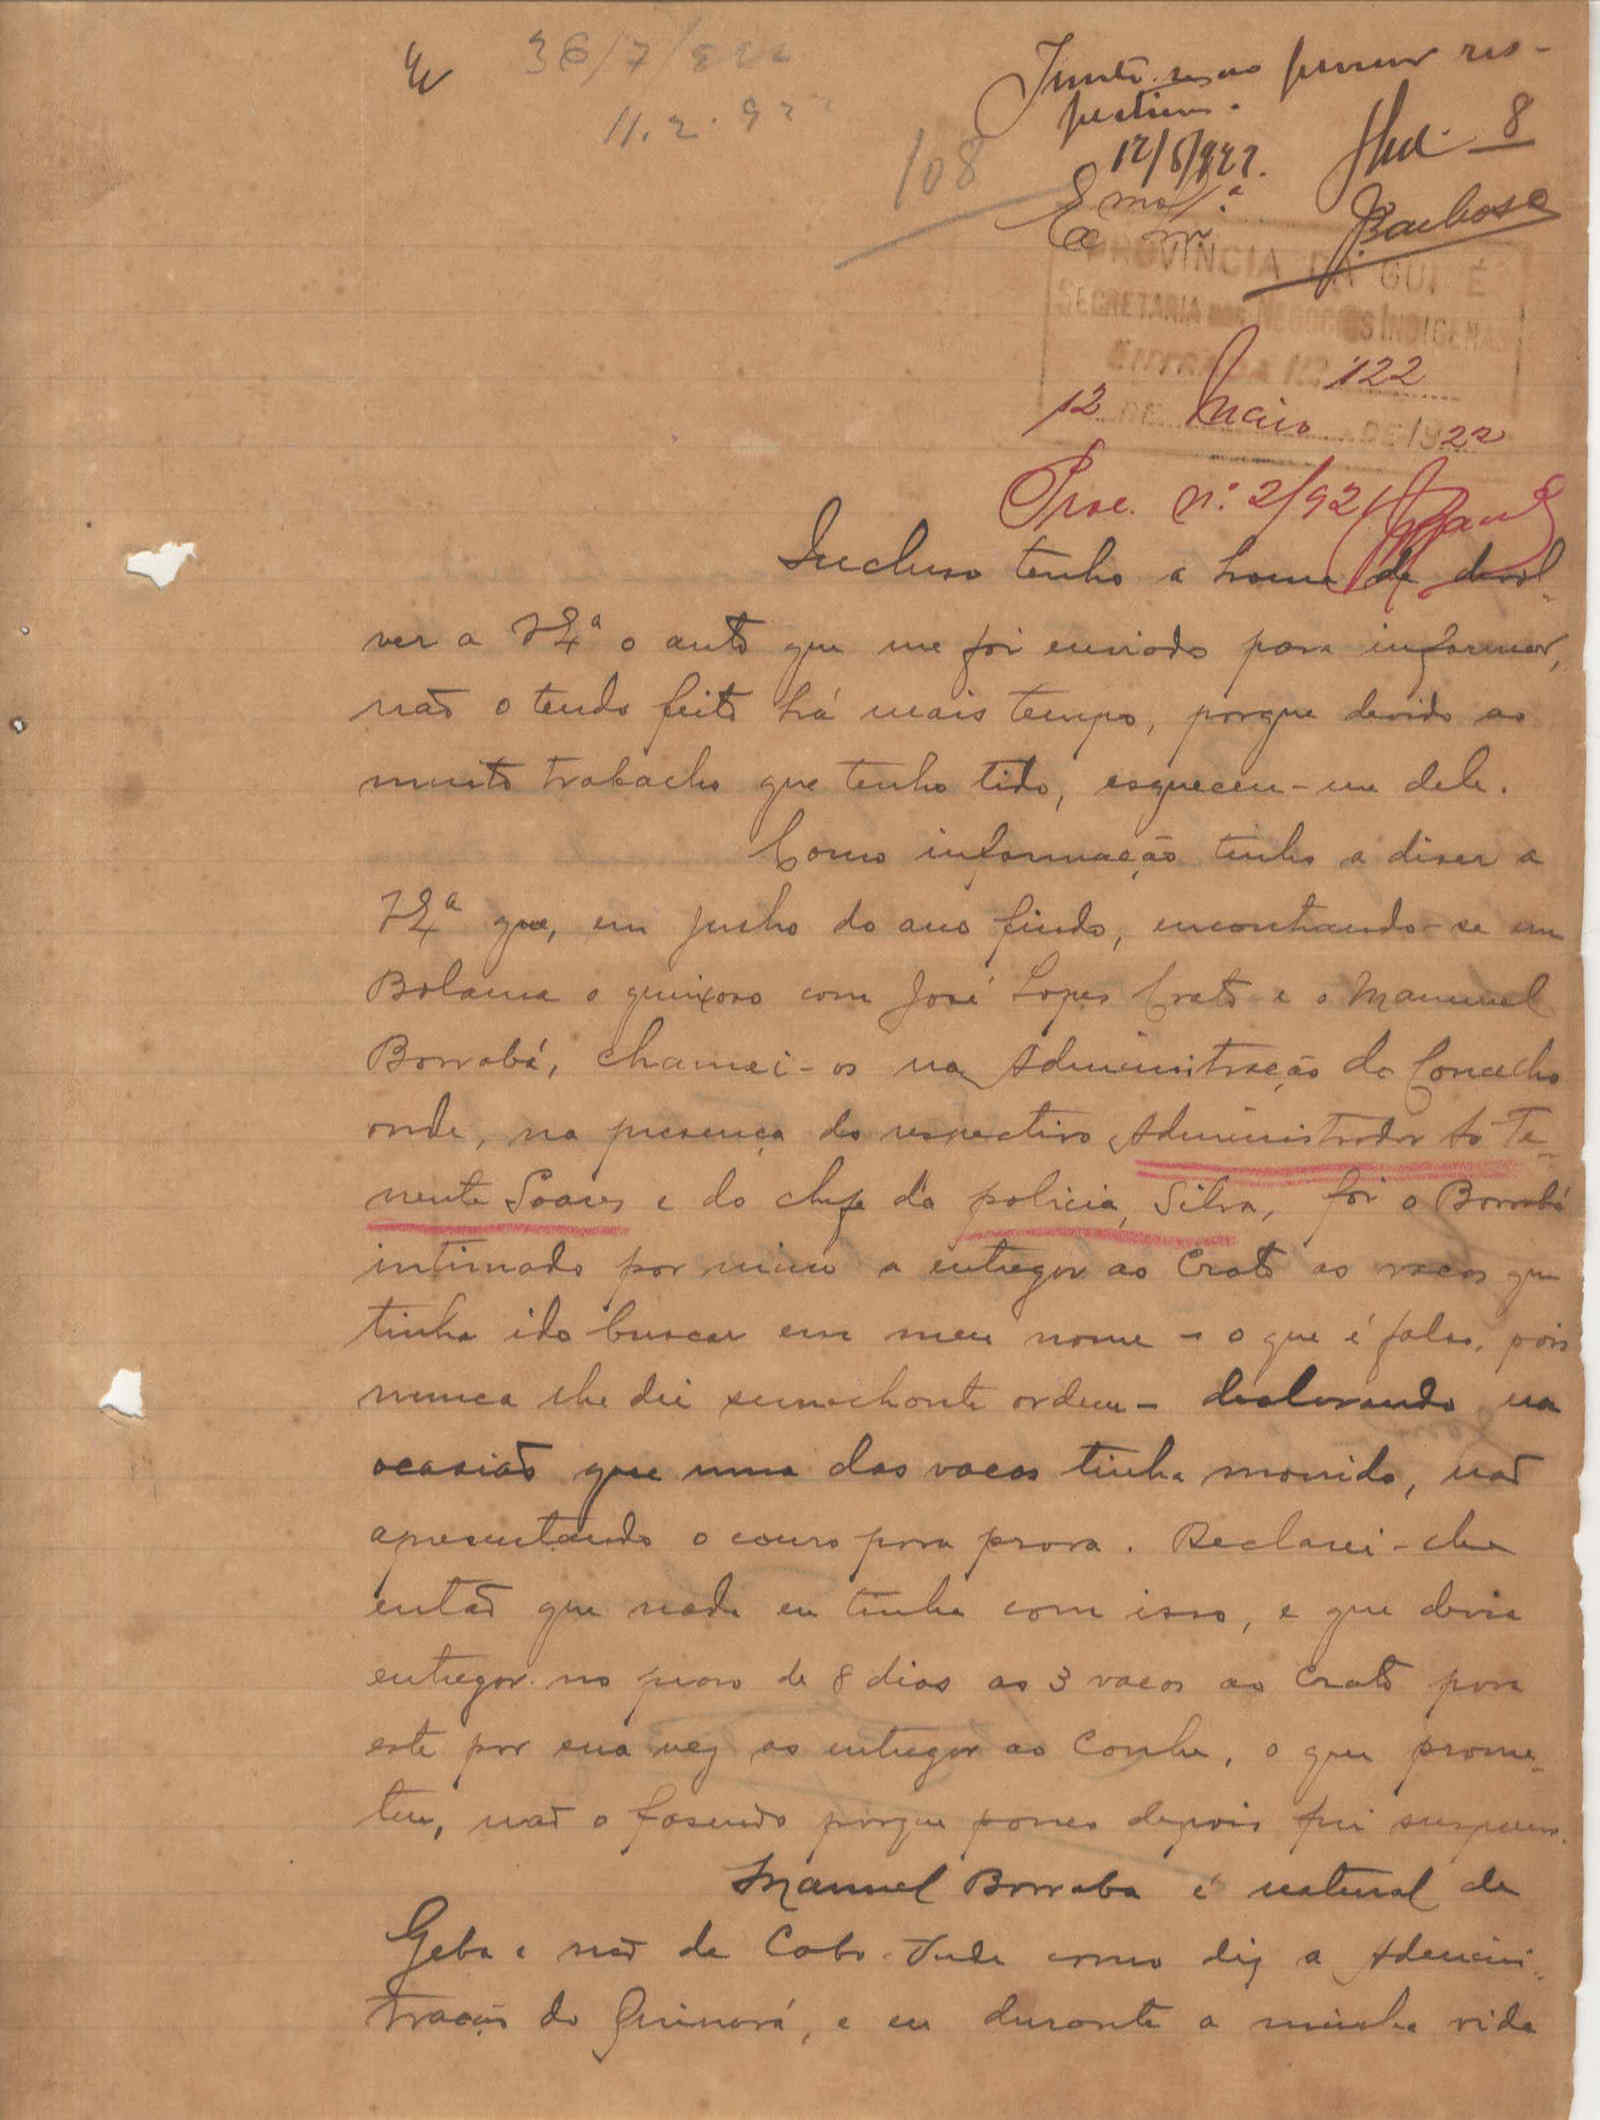 36/7/922
11.2.922
108
Junte-se ao processo res-
pectivo.
12/5/922.
8
Barbosa
PROVINCIA DA GUINÉ
SECRETARIA DOS NEGOCIOS INDIGENAS
ENTRADA Nº 122
12 DE Maio DE 1922
Proc. nº 2/921
Incluso tenho a honra de devol-
ver a V. Ex.ª o auto que me foi enviado para informar,
não o tendo feito há mais tempo, porque devido ao
muito trabalho que tenho tido, esqueceu-me dele.
Como informação tenho a diser a
V. Ex.ª que, em junho do ano findo, encontrando-se em
Bolama o queixoso com José Lopes Crato e o Manuel
Borrabá, chamei-os na Administração do Concelho
onde, na presença do respectivo Administrador Te-
nente Soares e do chefe da policia, Silva, foi o Borrabá
intimado por mim a entregar ao Crato as vacas que
tinha ido buscar em meu nome - o que é falso, pois
nunca lhe dei semelhante ordem - declarando na
ocasião que uma das vacas tinha morrido, não
apresentando o couro para prova. Declarei-lhe
então que nada eu tinha com isso, e que devia
entregar no praso de 8 dias as 3 vacas ao Crato para
este por sua vez as entregar ao Conhe, o que prome-
teu, não o fasendo porque pouco depois fui suspenso.
Manuel Borraba é natural de
Geba e não de Cabo-Verde como diz a Adminis-
tração do Quinará, e eu durante a minha vida